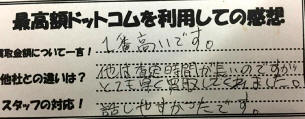 最高額ドットコムを利用しての感想
買取金額について一言! 1番高いです。
他社との違いは? 他は査定時間が長いのですが
とても早く買取してくれました。
スタッフの対応! 話しやすかったです。